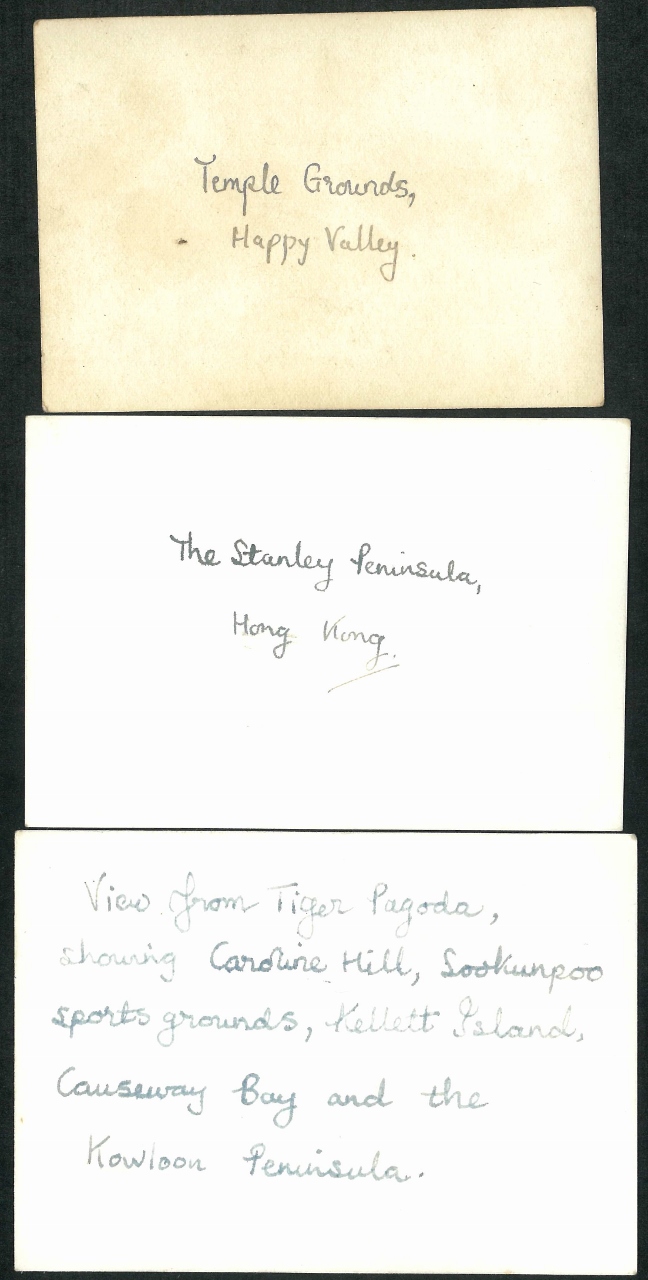 Temple Grounds,
Happy Valley.
The Stanley Peninsula,
Hong Kong.
View from Tiger Pagoda,
showing Caroline Hill, Sookunpoo
sports grounds, Kellett Island,
Causeway Bay and the
Kowloon Peninsula.